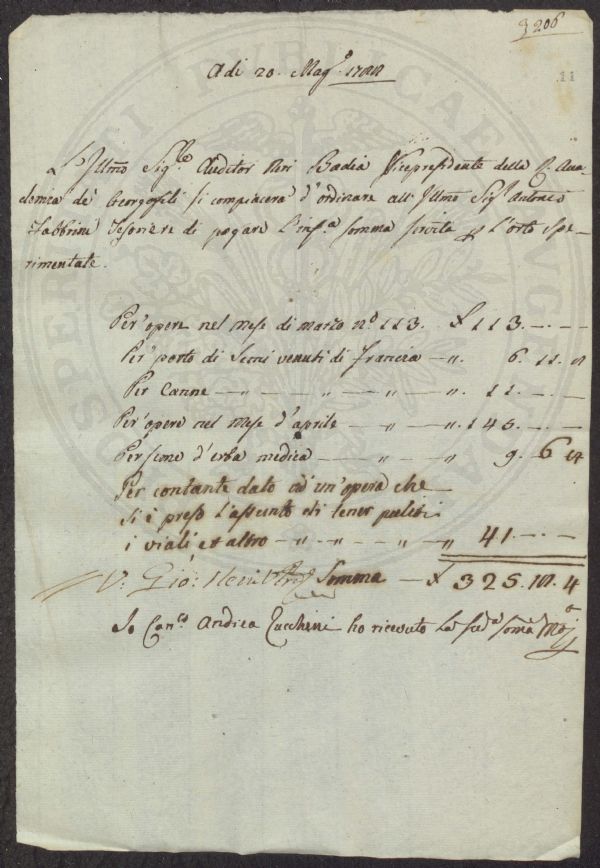 3206
11
Adì 20. Magº. 1788
L'Illmo Sigre Auditor Neri Badia Vicepresidente della R. Acca-
demia de' Georgofili si compiacerà d'ordinare all'Illmo Sigr Antonio
Fabbrini Tesoriere di pagare l'infra somma servita p l'orto Spe-
rimentale.
Per opere nel mese di marzo nº 113. £ 113. — . —
Per porto di Semi venuti di Francia — ". 6. 11. 8
Per Canne — " — " — " — " — ". 11. — . —
Per opere nel mese d'aprile — " — ". 145. — . —
Per seme d'erba medica — " — " 9. 6. 8
Per contante dato ad un'opera che
si è preso l'assunto di tener puliti
i viali et altro — " — " — " — " 41. — . —
V. Gio: Neri Somma — £ 325. 18. 4
Io Canco Andrea Zucchini ho ricevuto la sudа somma